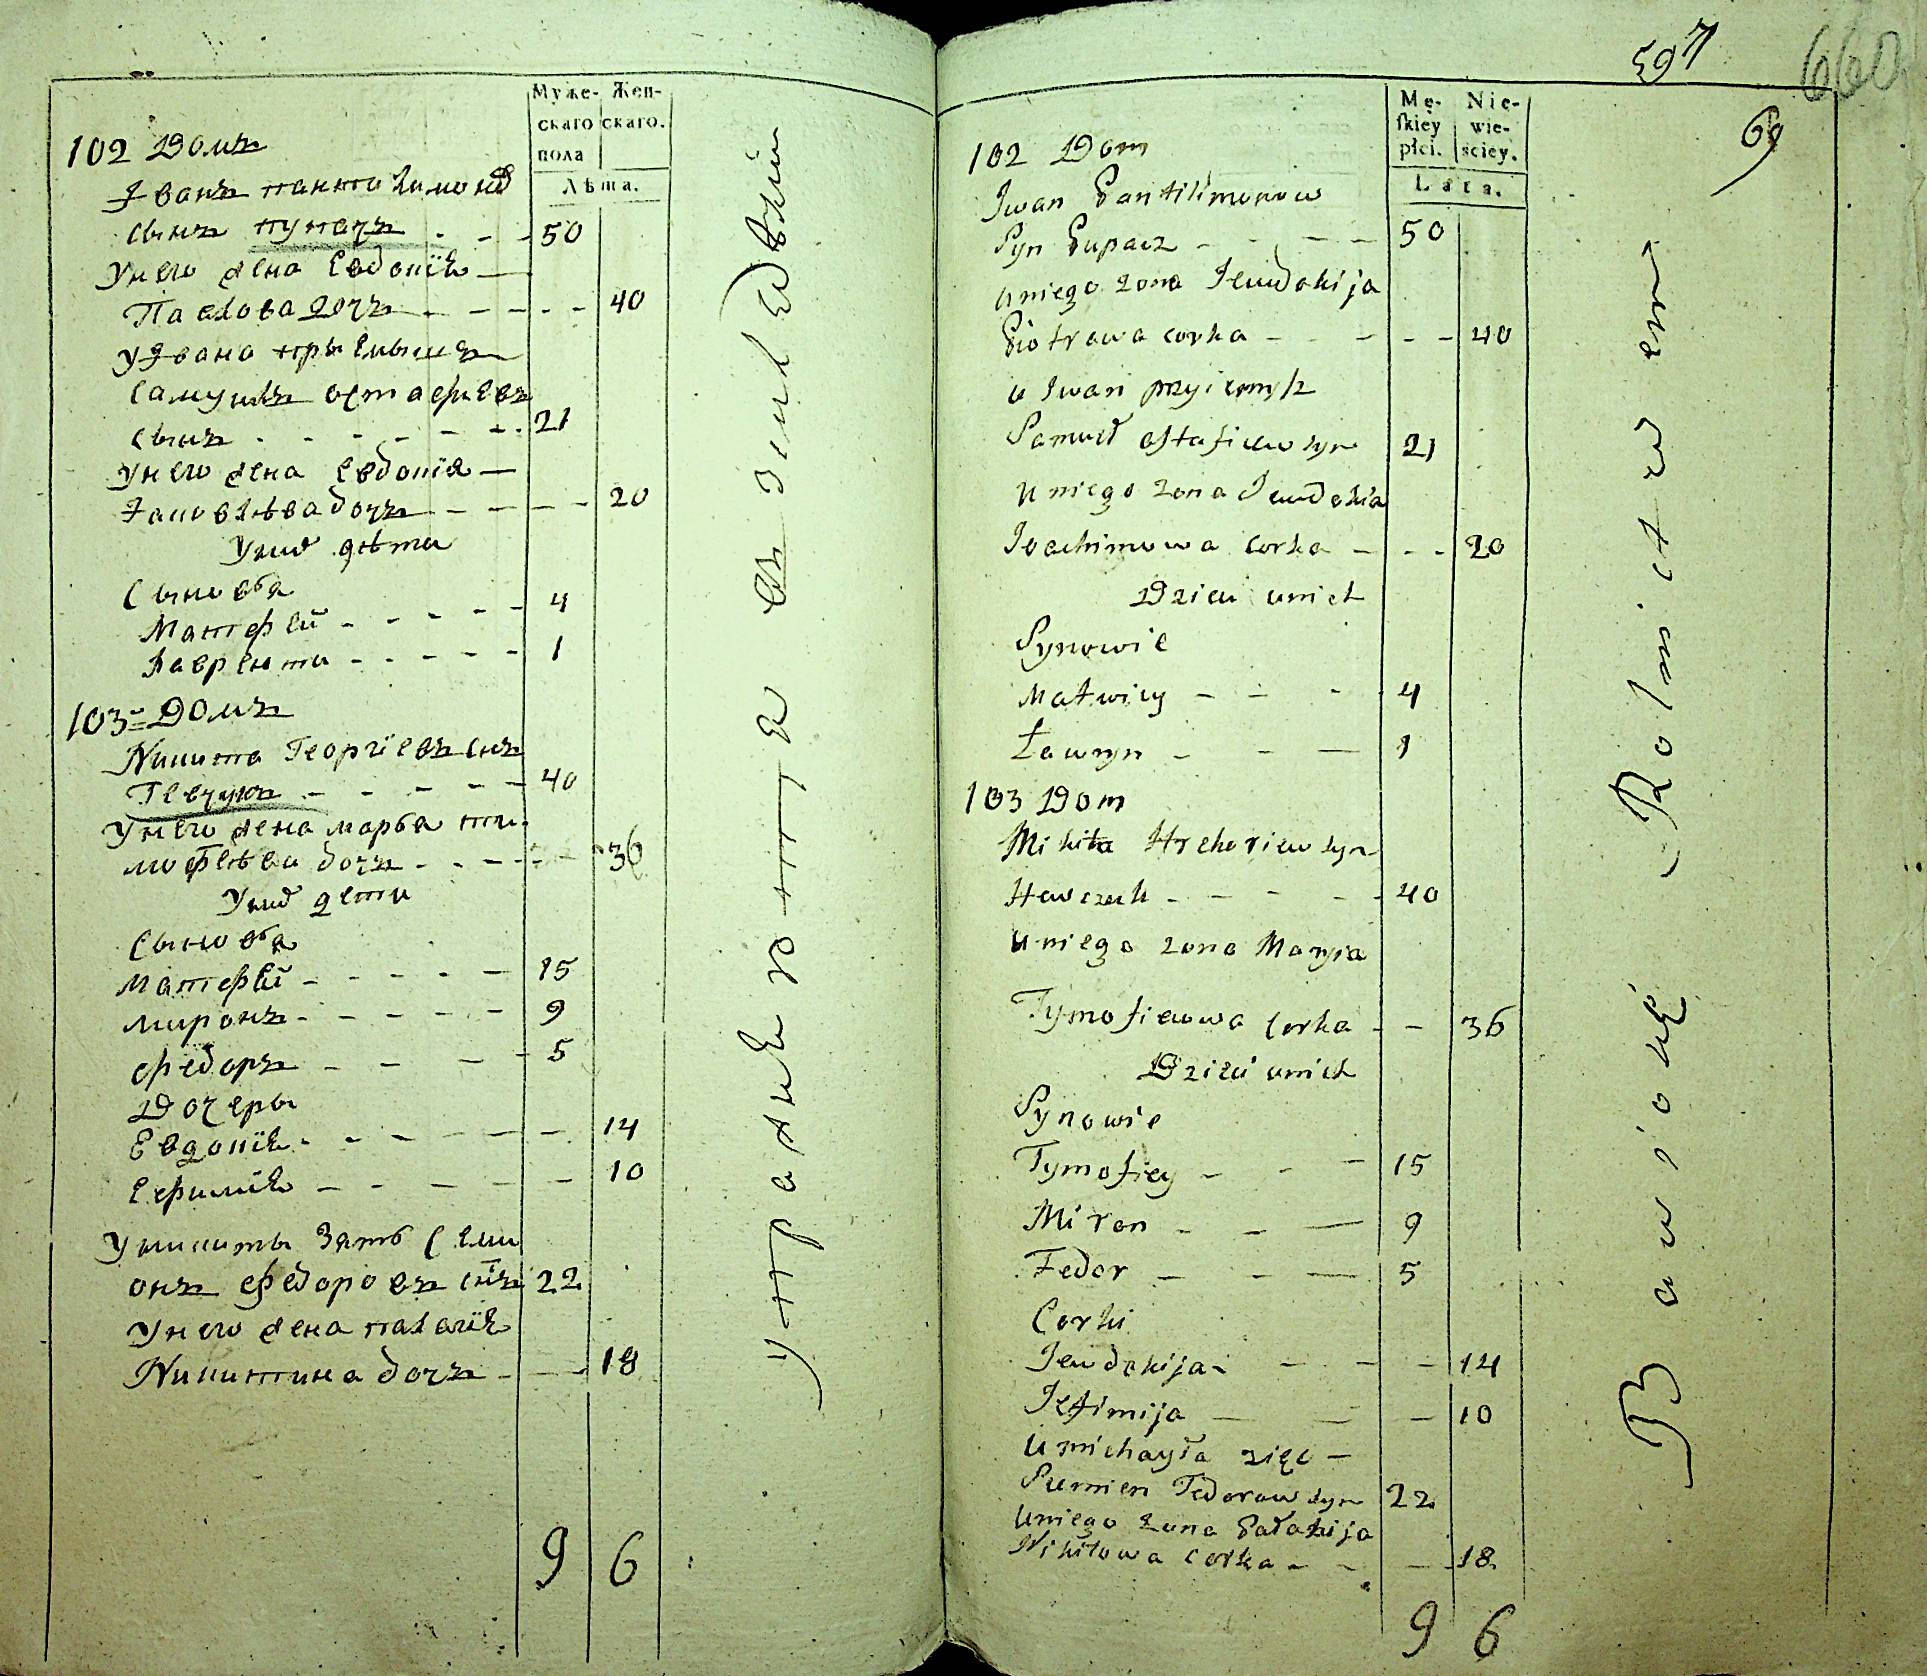 Муже-
скаго
пола
Жен-
скаго.
Лѣта.
102 Домъ
Иванъ Пантилимоновъ
сынъ Пупачъ - - - 50
У него жена Евдокія
Павлова дочъ - - - 40
У Ивана прыемышъ
Самуилъ Остафіевъ
сынъ - - - - - 21
У него жена Евдокія
дочъ - - - 20
У нихъ дѣти
Сыновья
Матфей - - - - 4
Лаврентий - - - - 1
103 Домъ
Никита Георгіевъ снъ
Гевчукъ - - - - - 40
У него жена Марья Ти-
мофѣева дочъ - - - - 36
У нихъ дети
Сыновья
Матфей - - - - - 15
Миронъ - - - - - 9
Федоръ - - - - 5
Дочеры
Евдокія - - - - - 14
Ефимія - - - - - 10
У Никиты зять Семи
онъ Федоровъ снъ 22
У него жена Палагія
Никитина дочъ - - - 18
9 6
597
660
69
Mę-
ſkiey
płci.
Nie-
wie-
ściey.
Lata.
102 Dom
Iwan Pantilimonow
Syn Pupacz - - - - 50
u niego zona Jewdokija
Piotrowa corka - - - - 40
u Iwan przyiemysz
Samuel Astafiew syn 21
u niego zona Jewdokia
Joachimowa corka - - - 20
Dzieci u nich
Synowie
Matwiey - - - 4
Ławryn - - - 1
103 Dom
Mikita Hrehoriew syn
Hewczuk - - - - - 40
u niego zona Marya
Tymofiewowa corka - - 36
Dzieci u nich
Synowie
Tymofiey - - - 15
Miron - - - 9
Fedor - - - 5
Corki
Jewdokija - - - - 14
Jefimija - - - 10
u Michayła zięć -
Siemien Fedorow syn 22
u niego zona Pałahija
Nikitowa corka - - - 18
9 6